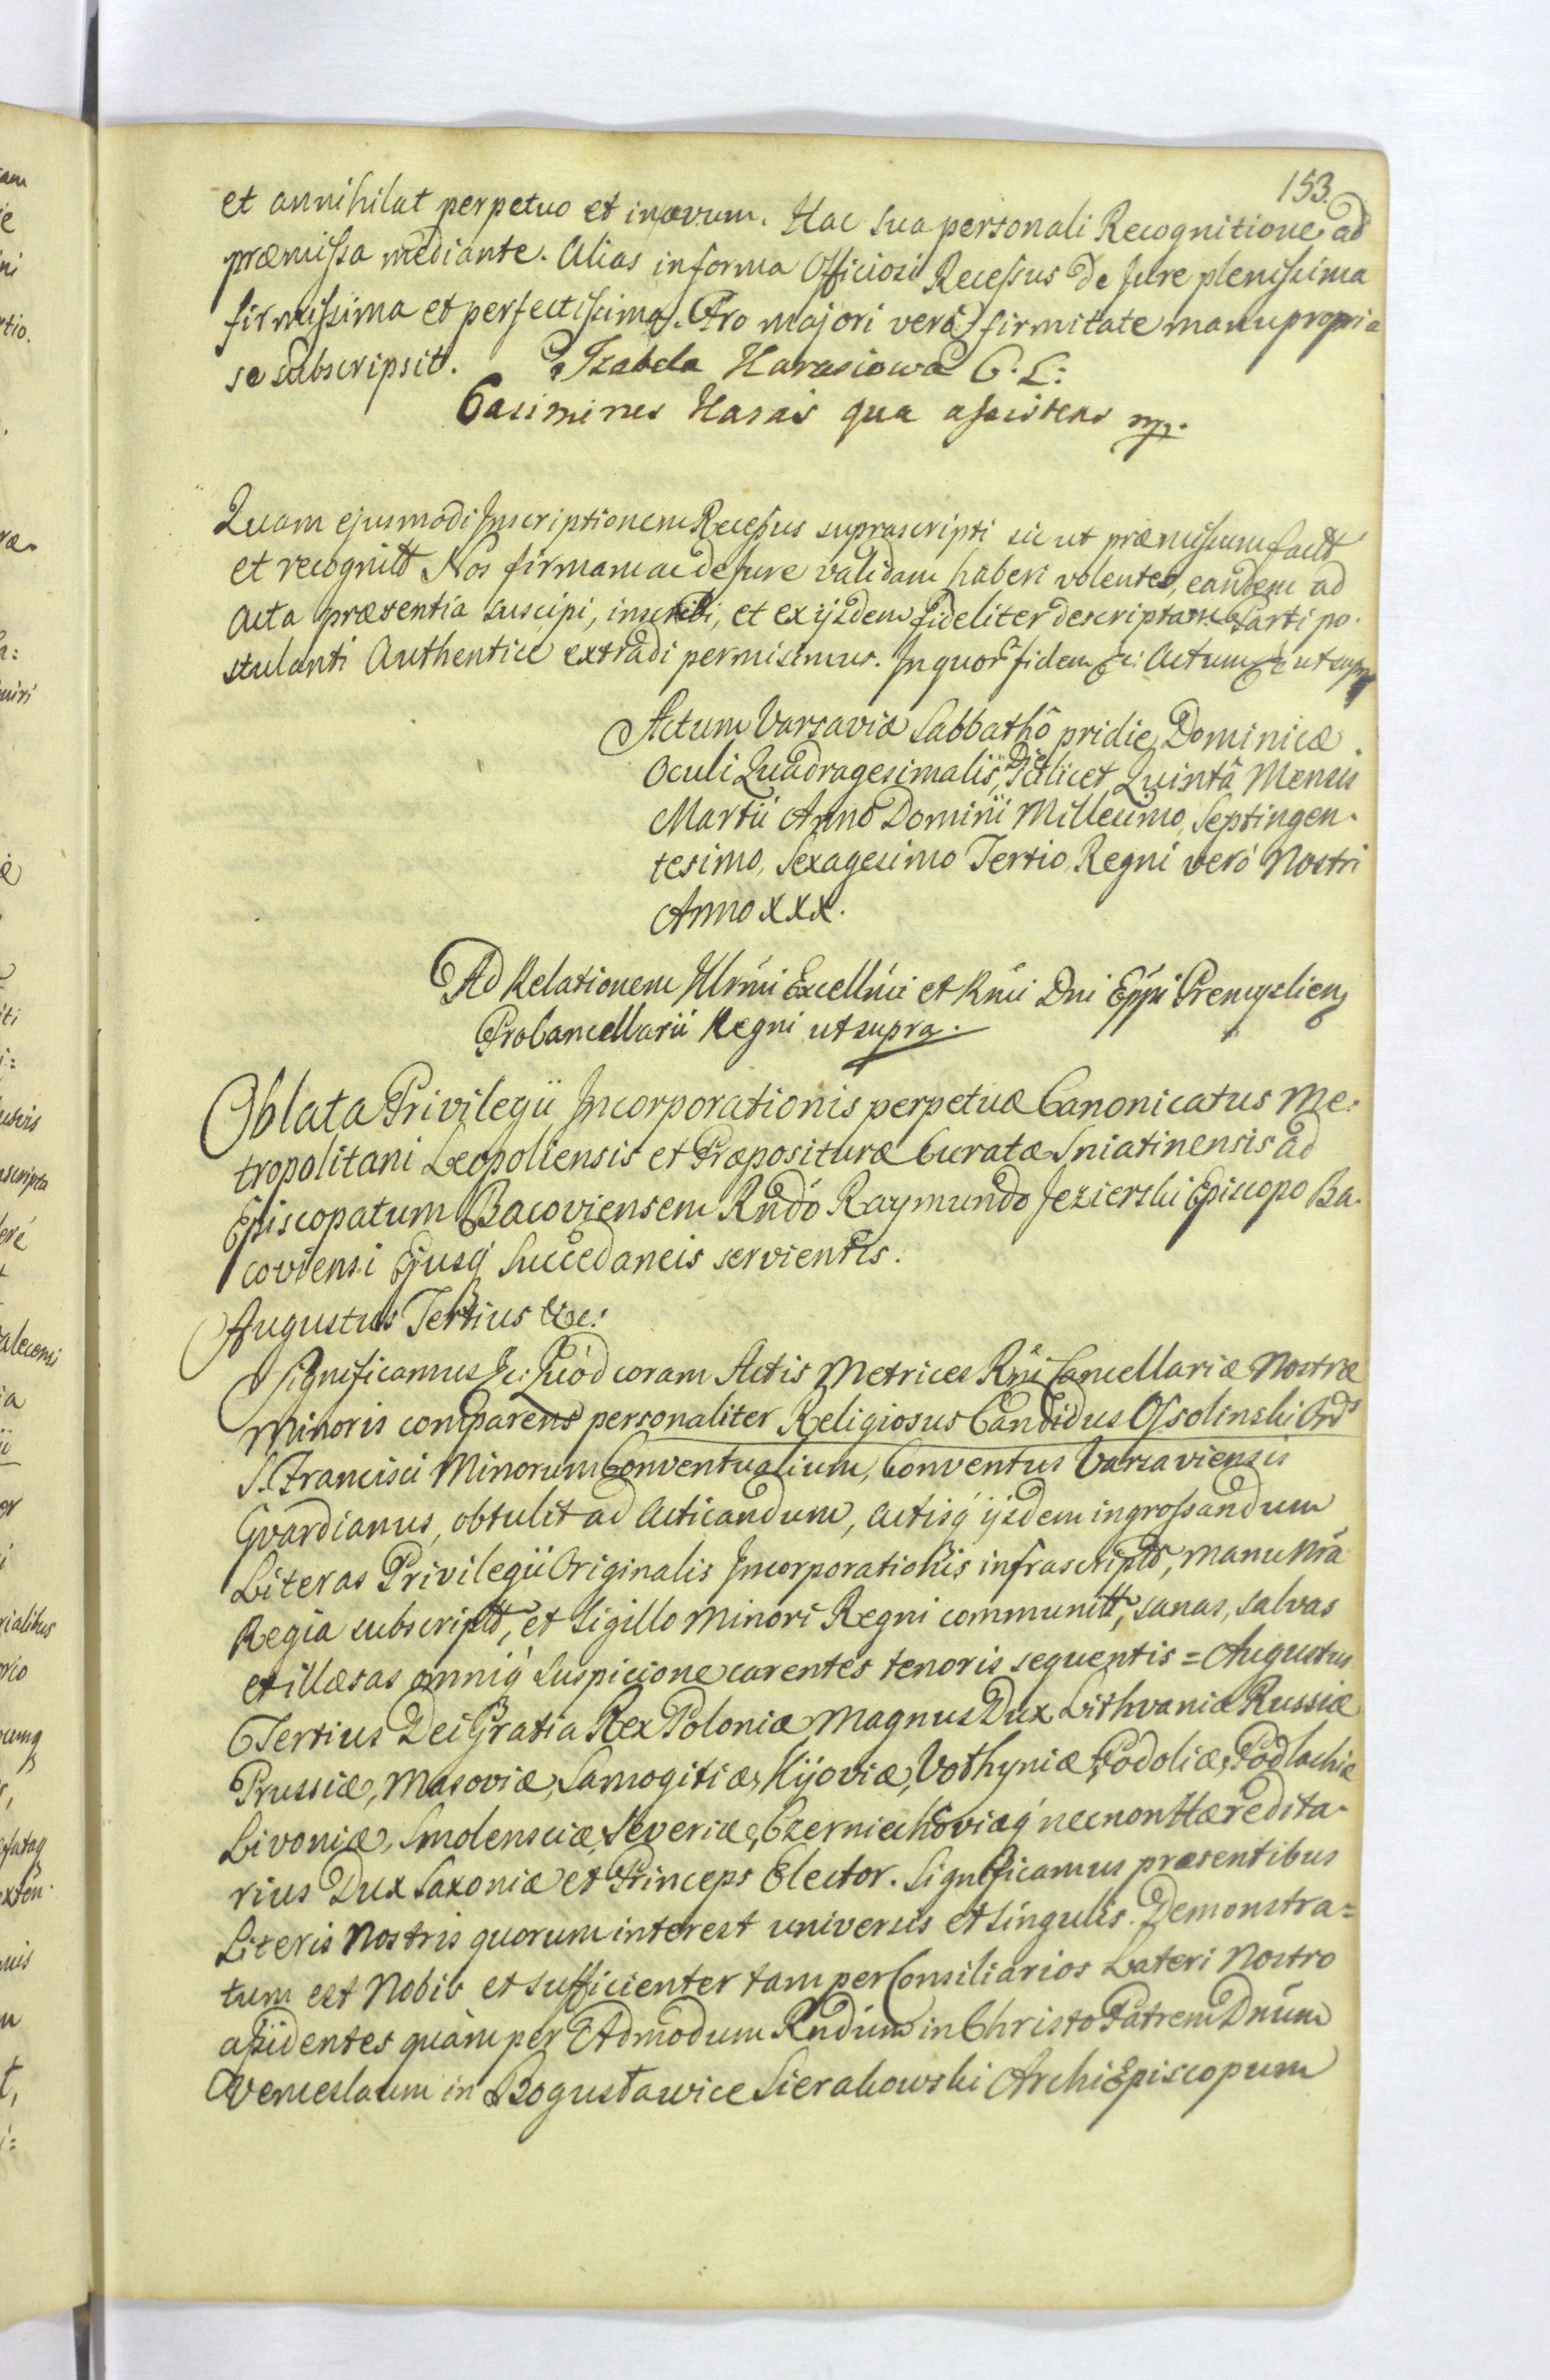 153.
et annihilat perpetuo et inævum. Hac sua personali Recognitione ad
præmissa mediante. Alias in forma Officiosi Recessus de Jure plenissima
firmissima et perfectissima. Pro majori verò firmitate manu propria
se subscripsit. Izabela Harasiowa C. L:
Casimirus Haras qua assistens mp.
Quam ejusmodi Inscriptionem Recessus suprascripti sic ut præmissum factt
et recognitt Nos firmam ac de Jure validam haberi volentes, eandem ad
Acta præsentia suscipi, inscribi, et ex ijsdem fideliter descriptam Parti po-
stulanti Authentice extradi permisimus. In quor fidem &c: Actum &c ut supra
Actum Varsaviæ Sabbathô pridie Dominicæ
Oculi Quadragesimalis, Die scilicet Quintâ Mensis
Martii Anno Domini Millesimo, Septingen-
tesimo, Sexagesimo Tertio, Regni verò Nostri
Anno XXX.
Ad Relationem Illrmi Excellmi et Rmi Dni Eppi Premyslien
ProCancellarii Regni ut supra.
Oblata Privilegii Incorporationis perpetuæ Canonicatus Me-
tropolitani Leopoliensis et Præpositurae Curatæ Sniatinensis ad
Episcopatum Bacoviensem Rndo Raymundo Jezierski Episcopo Ba-
coviensi Ejusq Succedaneis servientis.
Augustus Tertius &c:
Significamus &c: Quòd coram Actis Metrices Rni Cancellariæ Nostræ
Minoris comparens personaliter Religiosus Candidus Ossolinski Ords
S. Francisci Minorum Conventualium, Conventus Varsaviensis
Gvardianus, obtulit ad Acticandum, Actisq ijsdem ingrossandum
Literas Privilegii Originalis Incorporationis infrascriptt, manu Nra
Regia subscriptt, et Sigillo Minori Regni communitt, sanas, salvas
et illæsas omniq suspicione carentes tenoris sequentis = Augustus
Tertius Dei Gratia Rex Poloniæ Magnus Dux Lithvaniæ Russiæ
Prussiæ, Masoviæ, Samogitiæ, Kijoviæ, Volhyniæ, Podoliæ, Podlachiæ
Livoniæ, Smolensciæ, Severiæ, Czerniechoviæq necnon Hæredita-
rius Dux Saxoniæ et Princeps Elector. Significamus præsentibus
Literis Nostris quorum interest universis et singulis. Demonstra=
tum est Nobis et sufficienter tam per Consiliarios Lateri Nostro
assidentes quàm per Admodum Rndum in Christo Patrem Dnum
Venceslaum in Bogusławice Sierakowski ArchiEpiscopum